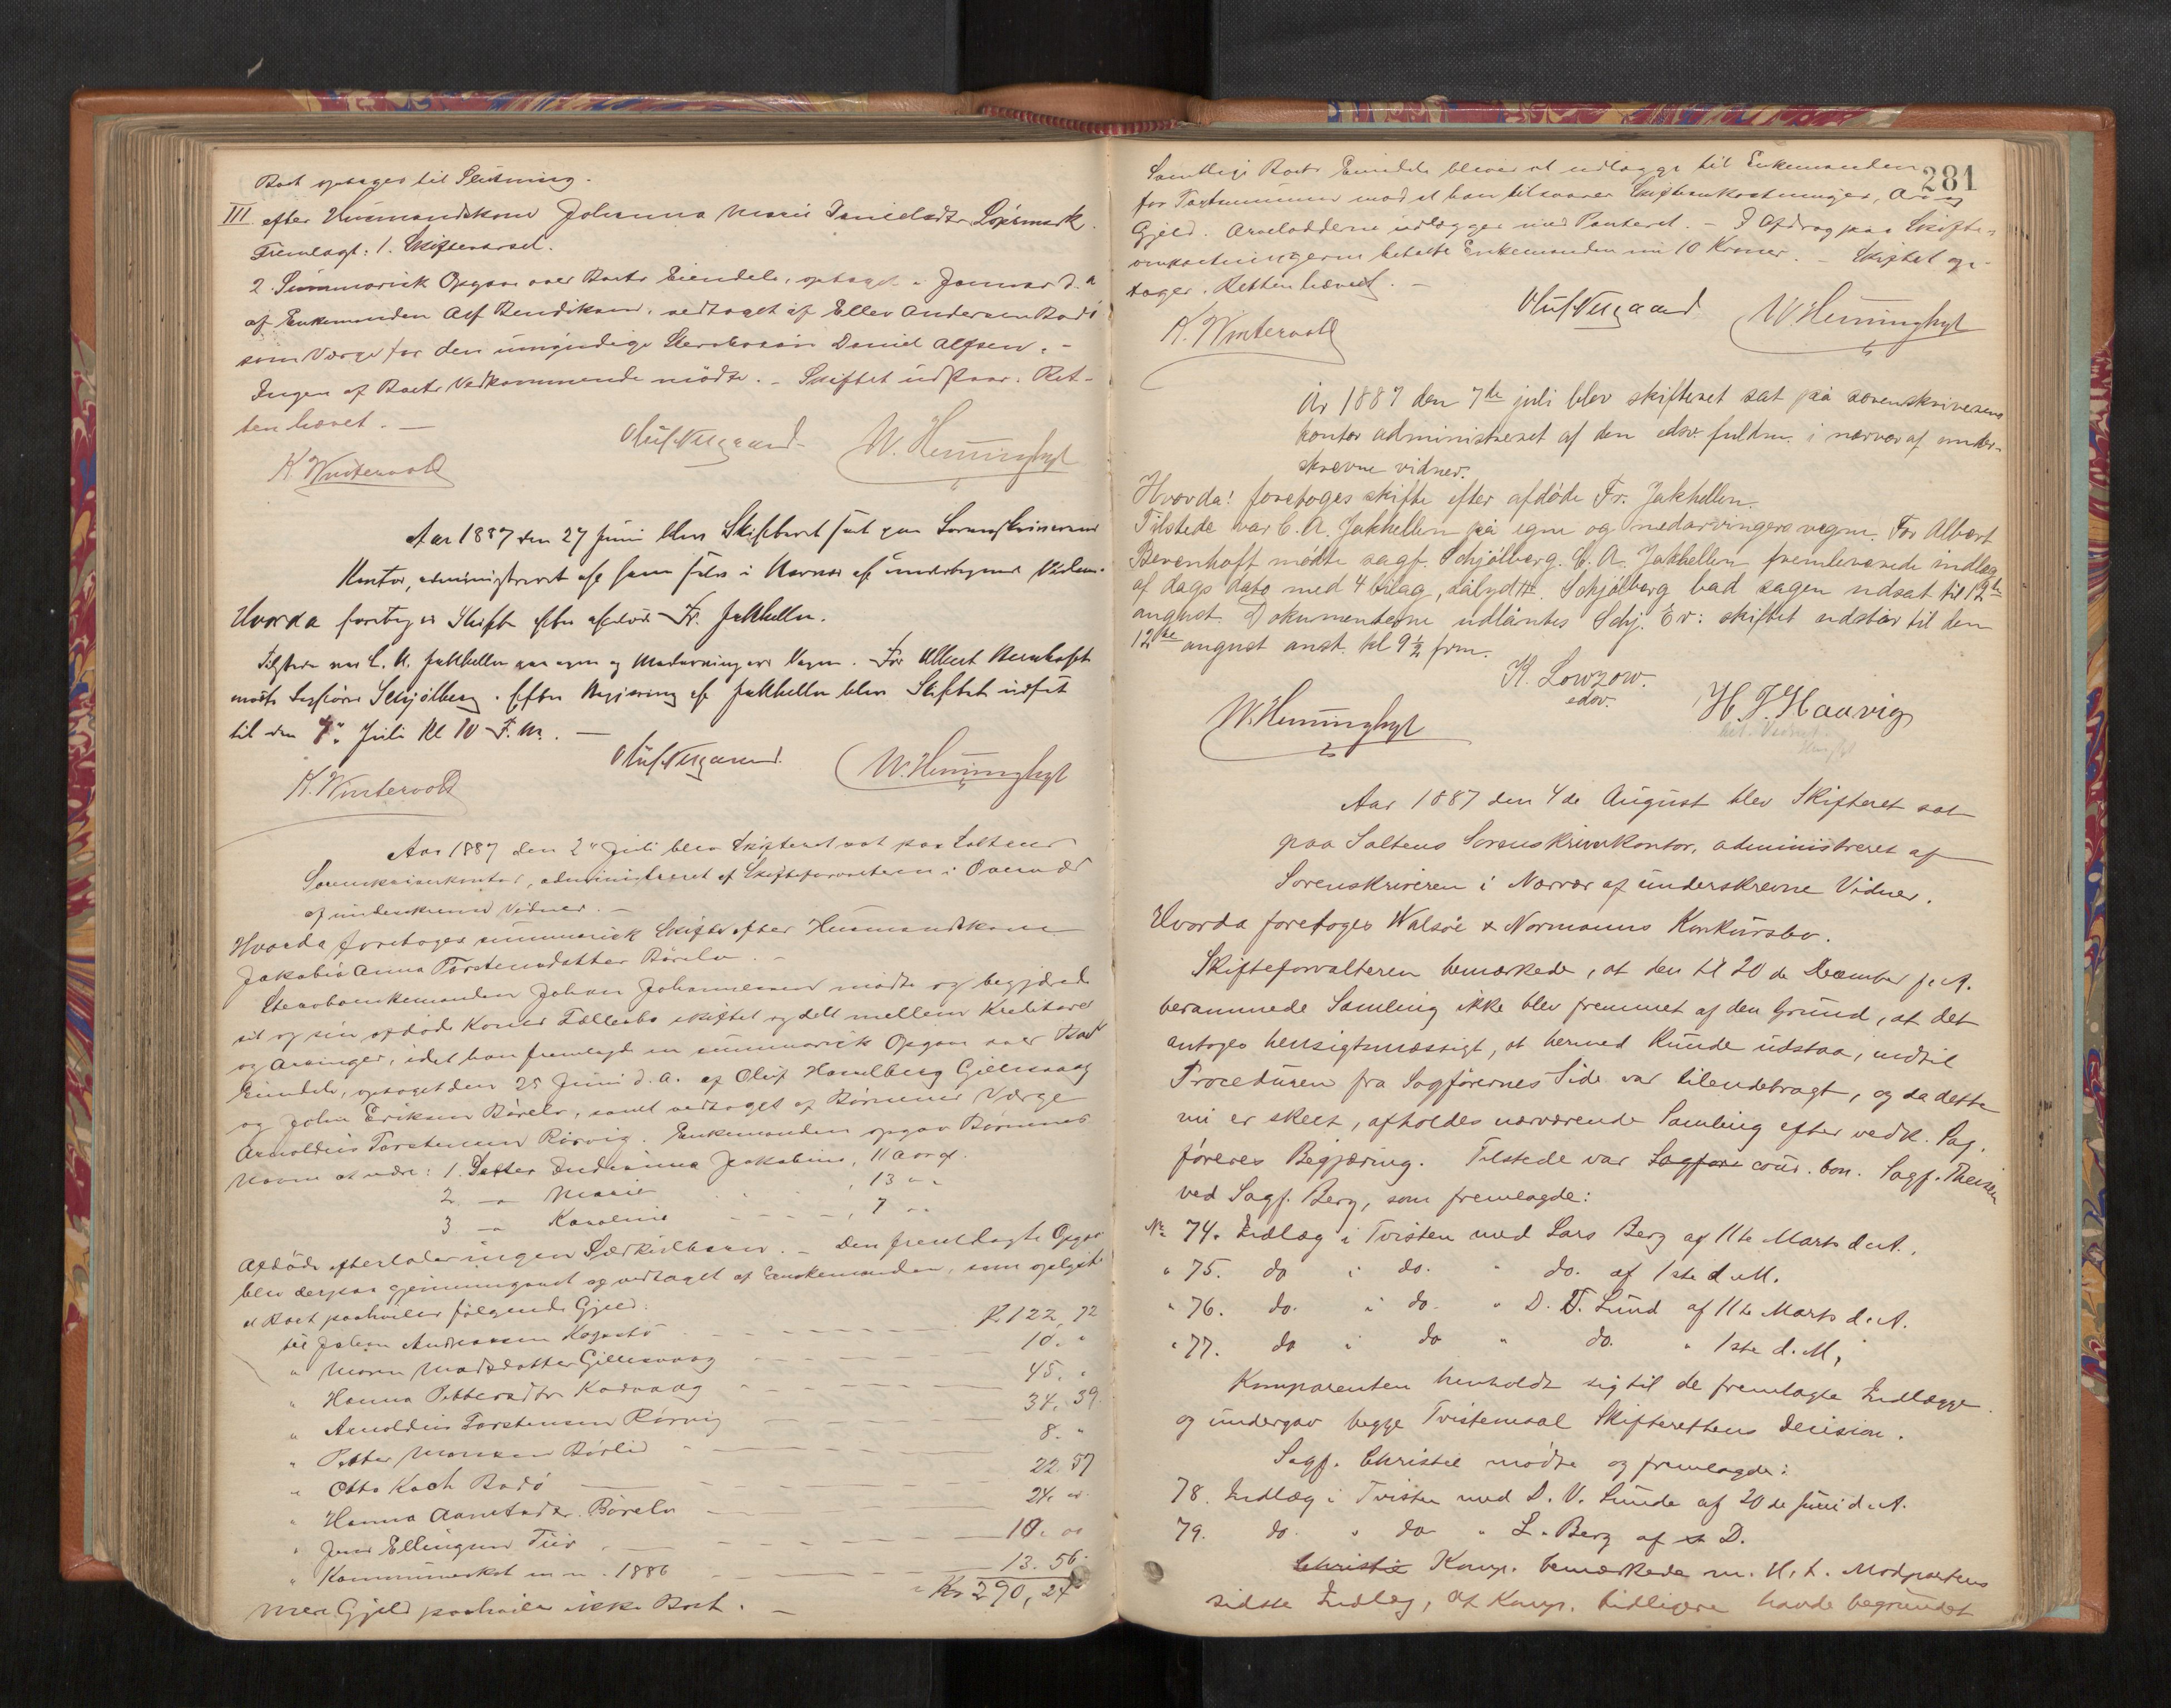 Boet optages til Slutning.
III. efter Husmandskone Johanna Marie Danielsdtr Løpsmark.
Fremlagt: 1. Skiftevarsel.
2. Summarisk Opgave over Boets Eiendele, optaget i Januar d. A
af Enkemanden Alf Bendiksen, vedtaget af Ellev Andersen Bodø
som Værge for den umyndige Stervbosøn Daniel Alfsen. -
Ingen af Boets Vedkommende mødte. - Skiftet udstaar. Ret-
ten hævet. -
Oluf Neegaard W. Henninghyt
K. Wintervold
Aar 1887 den 27 Juni blev Skifteret sat paa Sorenskriverens
Kontor, administreret af i Nærvær af undertegnede Vidner.
Hvorda foretoges Skifte efter afdøde Fr. Jakhelln.
Tilstede var C. A. Jakhelln paa egne og Medarvingers Vegne. For Albert Bevenhoft
mødte Sagfører Schjølberg. Efter Begjæring af Jakhelln blev Skiftet udsat
til den 7de Juli Kl 10 F. M. -
Oluf Neegaard. W. Henninghyt
K. Wintervold
Aar 1887 den 2den Juli blev Skifteret sat paa Saltens
Sorenskriverkontor, administreret af Skifteforvalteren i Overvær
af underskrevne Vidner. -
Hvorda foretoges summarisk Skifte efter Husmandskone
Jakobia Anna Torstensdatter Børelv. -
Stervboenkemanden Johan Johannessen mødte og begjærede
sit og sin afdøde Kones Fællesbo skiftet og delt mellem Kreditorer
og Arvinger, idet han fremlagde en summarisk Opgave over Boets
Eiendele, optaget den 25 Juni d. A. af Oluf Havelberg Gillesvaag
og John Eriksen Børelv, samt vedtaget af Børnenes Værge
Arnoldus Torstensen Rørvig. Enkemanden opgav Børnenes
Navne at være: 1. Datter Indianna Jakobine, 11 Aar gl.
2 - " Marie , 13 " "
3 - " Karoline , 7 " "
Afdøde efterlader ingen Særkulbarn. - Den fremlagte Opgave
blev derpaa gjennemgaaet og vedtaget af Enkemanden, som oplyste
at Boet paahviler følgende Gjæld:
til Johan Andreassen K 122,72
" Maren Madsdatter Gillesvaag 10. "
" Hanna Pettersdtr Kodvaag 45. "
" Arnoldus Torstensen Rørvig 34,39
" Petter Monsen Børlid 8. "
" Otto Koch Bodø 22.57
" Hanna Børelv 24. "
" Jens Ellingsen Tuv 10. 00
" Kommuneskat m. m. 1886 13.56
Kr 290,24
Mere Gjæld paahviler ikke Boet. -
281
Samtlige Boets Eiendele bliver at udlægge til Enkemanden
for Taxtsummen mod at han tilsvarer Skifteomkostninger, Arv og
Gjæld. Arvelodderne udlægges med Panteret. - I Afdrag paa Skifte-
omkostningerne betalte Enkemanden nu 10 Kroner. - Skiftet op-
tages. Retten hævet. -
Oluf Neegaard W Henninghyt
K. Wintervold
År 1887 den 7de juli blev skifteret sat på sorenskriverens
kontor administreret af den edsv. fuldm. i nærvær af under-
skrevne vidner.
Hvorda! foretoges skifte efter afdøde Fr. Jakhelln.
Tilstede var C. A. Jakhellen på egne og medarvingers vegne. For Albert
Bevenhoft mødte sagf. Schjølberg. C. A. Jakhellen fremleverede indlæg
af dags dato med 4 bilag, sålydtt. Schjølberg bad sagen udsat til 12te
august. Dokumenterne udlåntes Schj. Er: skiftet udstår til den
12te august anst. kl 9½ frm.
K. Lowzow.
edsv.
W. Henninghyt
H. J. Haavig
Aar 1887 den 4de August blev Skifteret sat
paa Saltens Sorenskriverkontor, administreret af
Sorenskriveren i Nærvær af underskrevne Vidner.
Hvorda foretoges Walsøe & Normanns Konkursbo.
Skifteforvalteren bemærkede, at den til 20de December f. A.
berammede Samling ikke blev fremmet af den Grund, at det
antoges hensigtsmæssigt, at hermed kunde udstaa, indtil
Proceduren fra Sagførernes Side var tilendebragt, og da dette
nu er skeet, afholdes nærværende Samling efter vedk. Sag-
føreres Begjæring. Tilstede var Sagføre cour. bon. Sagf. Theisen
ved Sagf. Berg, som fremlagde:
No 74. Indlæg i Tvisten med Lars Berg af 11te Marts d. A.
" 75. do i do. " do. af 1ste d. M.
" 76. do. i do. " D. T. Lund af 11te Marts d. A.
" 77. do i do " do. " 1ste d. M.
Komparenten henholdt sig til de fremlagte Indlægge
og undergav begge Tvistemaal Skifterettens Decision.
Sagf. Christie mødte og fremlagde:
78. Indlæg i Tvisten med D. V. Lunde af 20de Juni d. A.
79. do. " do " L. Berg af s. D.
Christie Komp. bemærkede m. H. t. Modpartens
sidste Indlæg, at Komp. tidligere havde begrundet